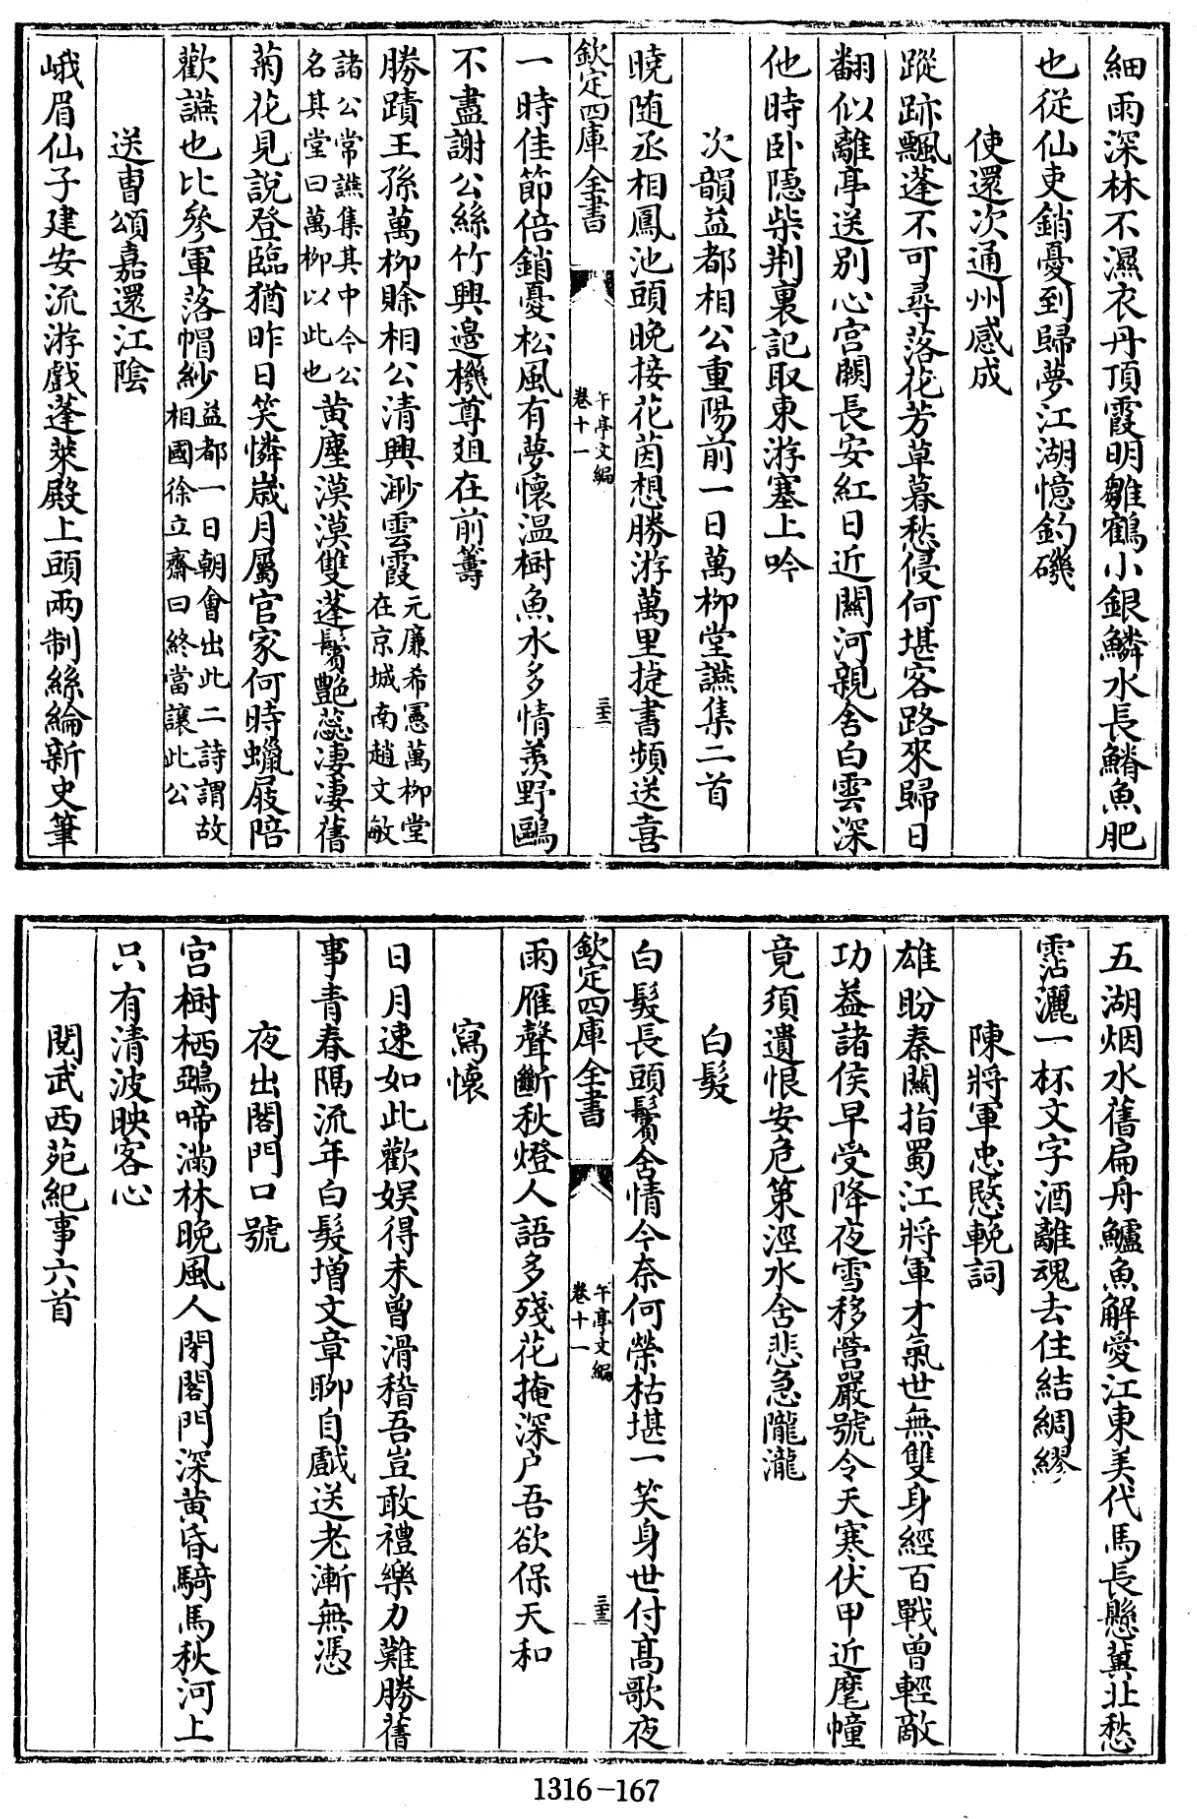 細雨深林不濕衣丹頂霞明雛鶴小銀鱗水長鱅魚肥
也従仙吏銷憂到歸夢江湖憶釣磯
使還次通州感成
蹤跡飄蓬不可尋落花芳草暮愁侵何堪客路來歸日
翻似離亭送别心宫闕長安紅日近關河親舍白雲深
他時卧隠柴荆裏記取東游塞上吟
次韻益都相公重陽前一日萬柳堂讌集二首
曉随丞相鳳池頭晚接花茵想勝游萬里捷書頻送喜
欽定四庫全書
午亭文編
卷十一
三十二
一時佳節倍銷憂松風有夢懷温樹魚水多情羡野鷗
不盡謝公絲竹興邉機尊爼在前籌
勝蹟王孫萬柳賖相公清興渺雲霞元廉希憲萬柳堂
在京城南趙文敏
諸公常讌集其中今公
名其堂曰萬柳以此也黄塵漠漠雙蓬鬢艶蕊凄凄舊
菊花見說登臨猶昨日笑憐歳月屬官家何時蠟屐陪
歡讌也比參軍落帽紗益都一日朝會出此二詩謂故
相國徐立齋曰終當讓此公
送曹頌嘉還江陰
峨眉仙子建安流游戲蓬萊殿上頭兩制絲綸新史筆
五湖烟水舊扁舟鱸魚解愛江東美代馬長懸冀北愁
霑灑一杯文字酒離魂去住結綢繆
陳將軍忠愍輓詞
雄盼秦關指蜀江將軍才氣世無雙身經百戰曾輕敵
功益諸侯早受降夜雪移營嚴號令天寒伏甲近麾幢
竟須遺恨安危策涇水含悲急隴瀧
白髮
白髮長頭鬢含情今奈何榮枯堪一笑身世付髙歌夜
欽定四庫全書
午亭文編
卷十一
三十三
雨雁聲斷秋燈人語多殘花掩深户吾欲保天和
寫懷
日月速如此歡娱得未曾滑稽吾豈敢禮樂力難勝舊
事青春隔流年白髮增文章聊自戲送老漸無憑
夜出閣門口號
宫樹栖鵶啼滿林晚風人閉閣門深黄昏騎馬秋河上
只有清波映客心
閲武西苑紀事六首
1316-167